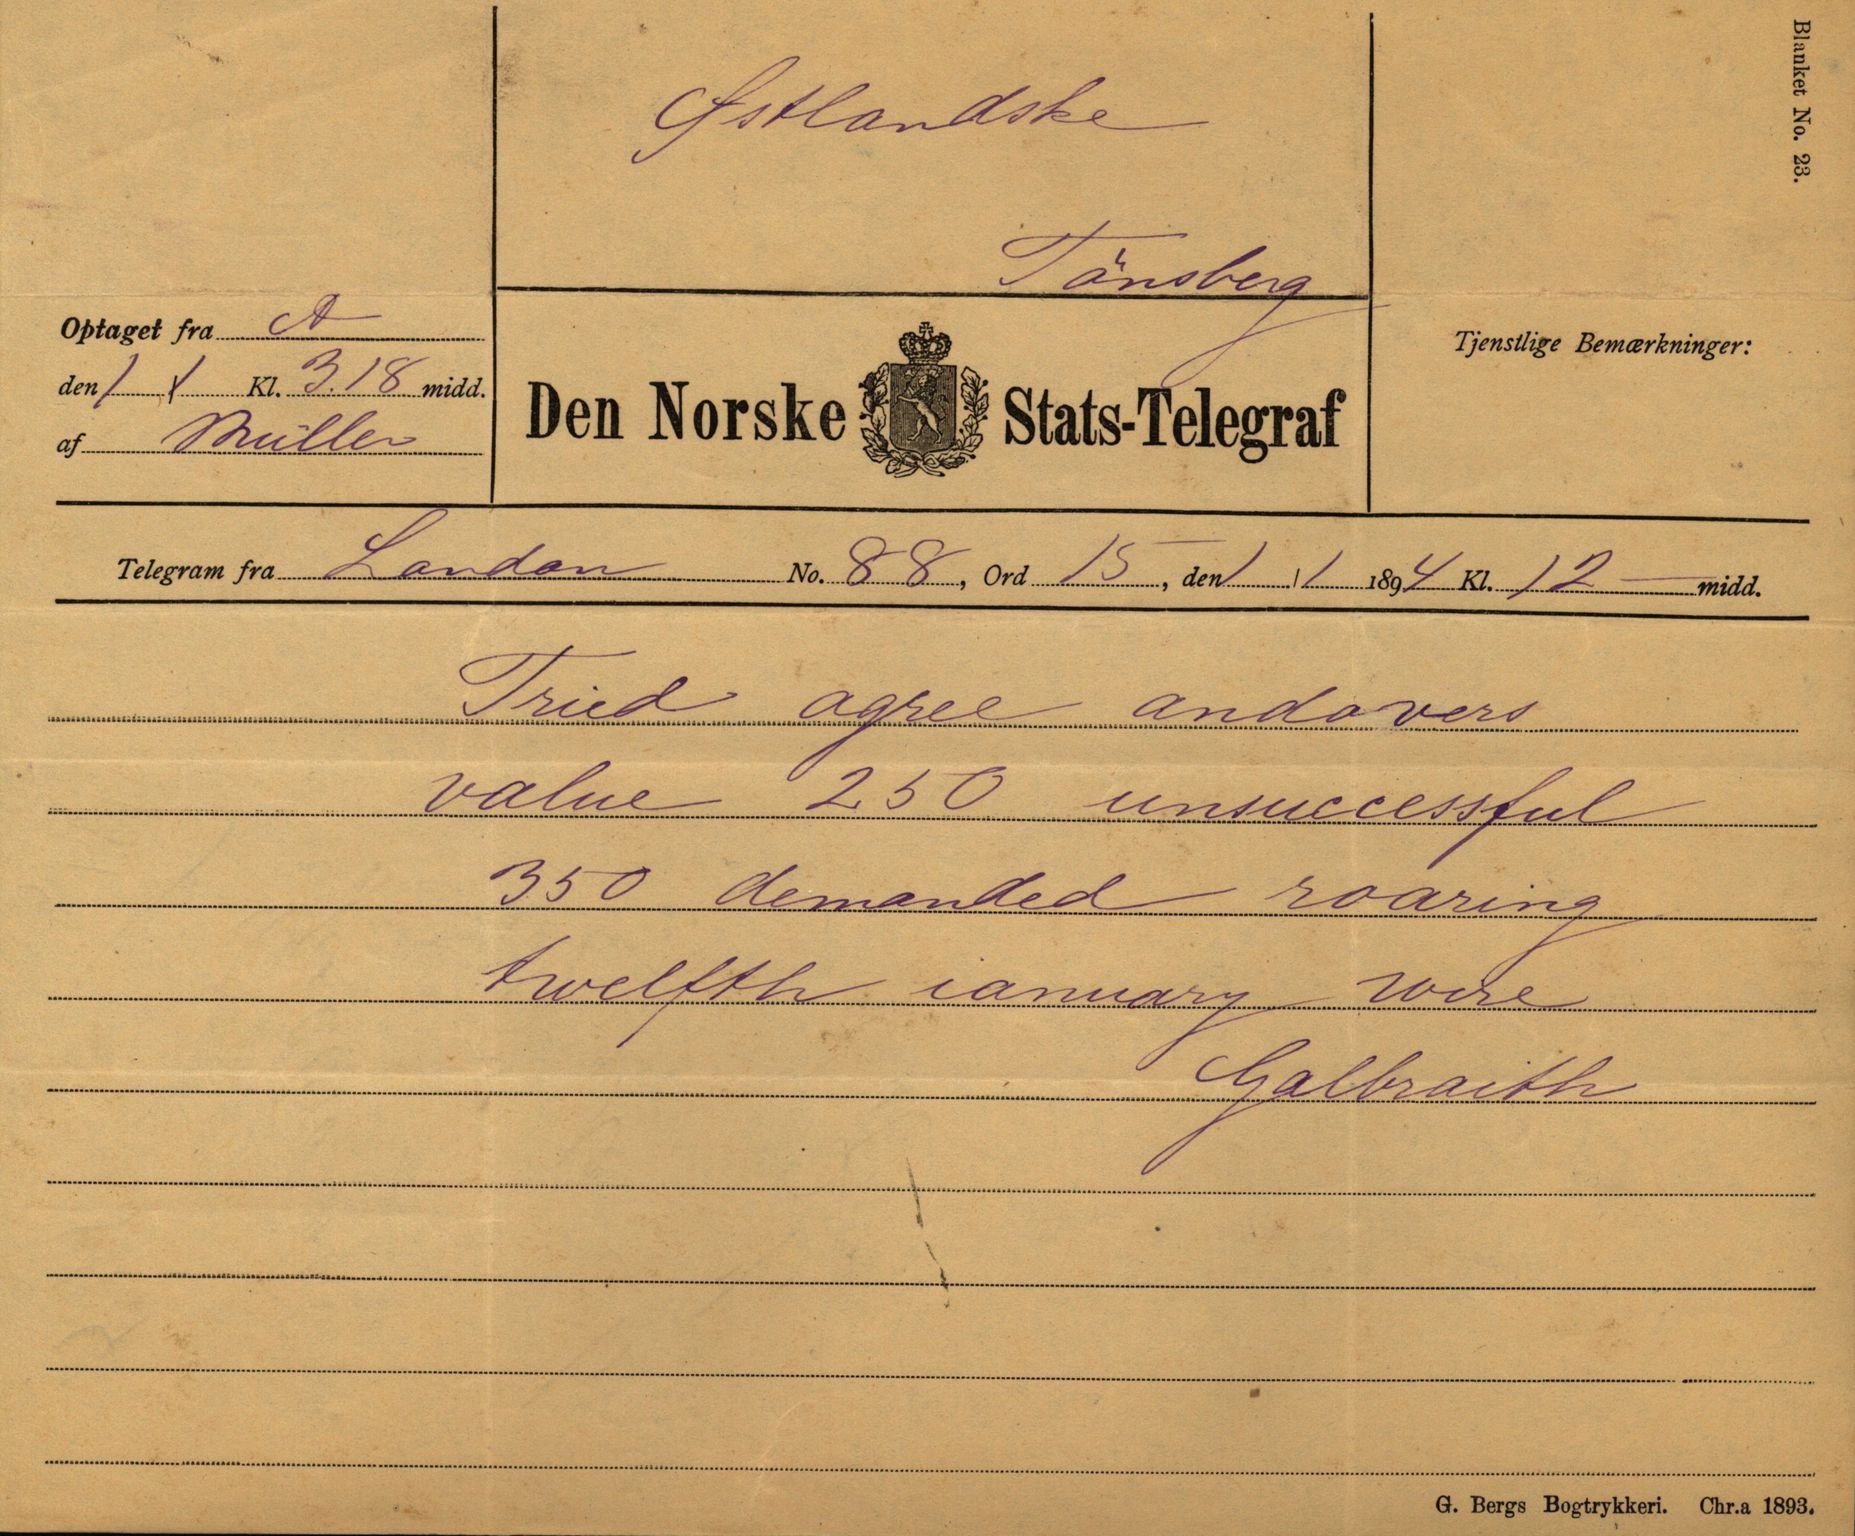 Blanket No. 23.
Østlandske
Tönsberg
Optaget fra A
den 1 / 1 Kl. 3.18 midd.
af Müller
Den Norske Stats-Telegraf
Tjenstlige Bemærkninger:
Telegram fra London No. 88, Ord 15, den 1 / 1 1894 Kl. 12 — midd.
Tried agree andovers
value 250 unsuccessful
350 demanded roaring
twelfth ianuary wire
Galbraith
G. Bergs Bogtrykkeri. Chr.a 1893.